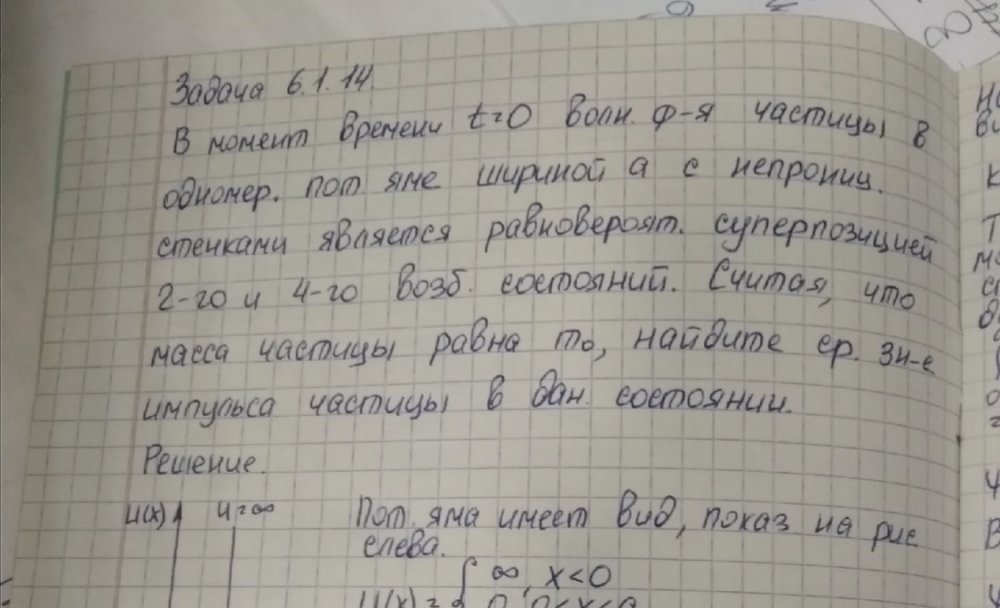 Задача 6.1.14.
В момент времени t=0 волн. ф-я частицы в
одномер. пот яме шириной a с непрониц.
стенками является равновероят. суперпозицией
2-го и 4-го возб. состояний. Считая, что
масса частицы равна m₀, найдите ср. зн-е
импульса частицы в дан. состоянии.
Решение.
U(x) U=∞ Пот. яма имеет вид, показ на рис
слева.
∞, x<0
U(x) = 0, 0<x<a